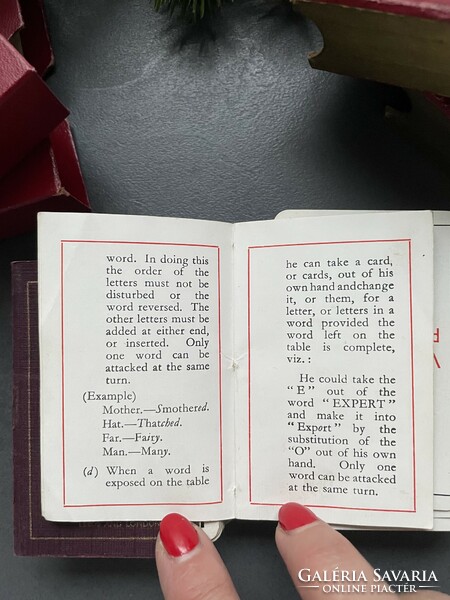 word. In doing this
the order of the
letters must not be
disturbed or the
word reversed. The
other letters must be
added at either end,
or inserted. Only
one word can be
attacked at the same
turn.
(Example)
Mother.—Smothered.
Hat.—Thatched.
Far.—Fairy.
Man.—Many.
(d) When a word is
exposed on the table
he can take a card,
or cards, out of his
own hand andchange
it, or them, for a
letter, or letters in a
word provided the
word left on the
table is complete,
viz. :
He could take the
“E” out of the
word “EXPERT”
and make it into
“Expert” by the
substitution of the
“O” out of his own
hand. Only one
word can be attacked
at the same turn.
AND LONDON
GALÉRIA SAVARIA
ONLINE PIACTÉR